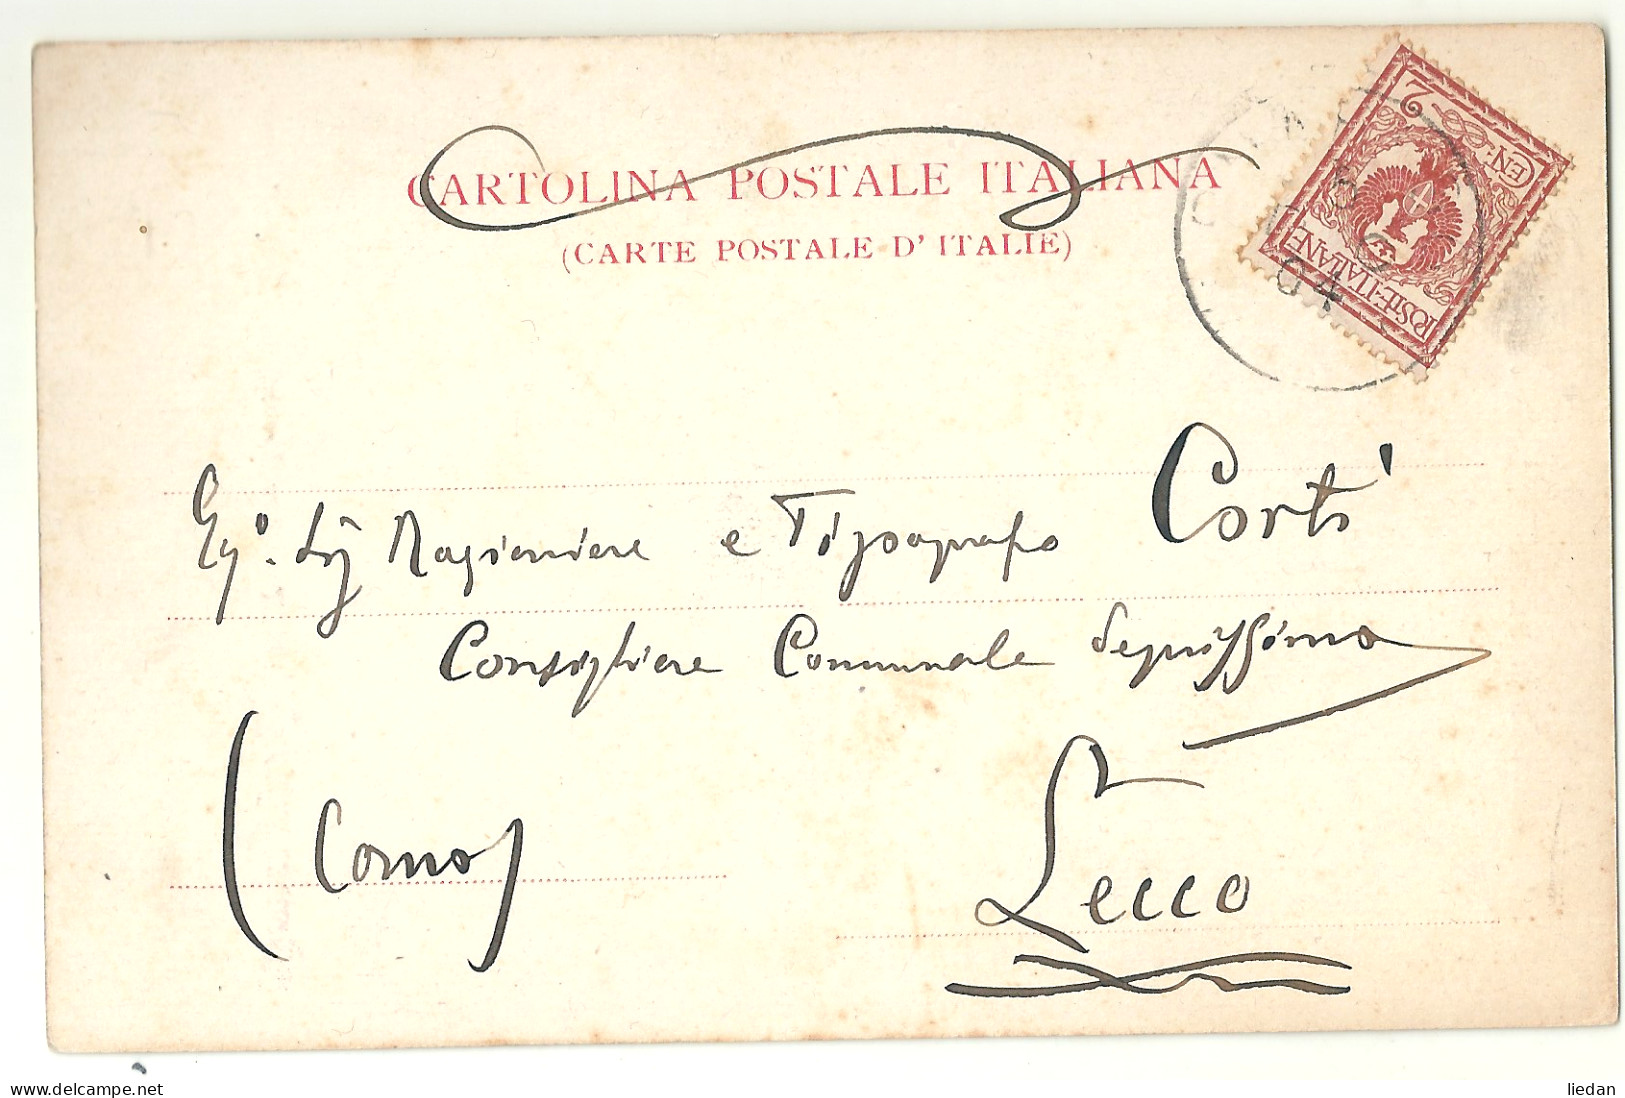 CARTOLINA POSTALE ITALIANA
(CARTE POSTALE D' ITALIE)
2
CEN:
POSTE·ITALIANE
04
Eg.º Sig Ragioniere e Tipografo Corti
Consigliere Comunale degnissimo
(Como)
Lecco
www.delcampe.net
liedan